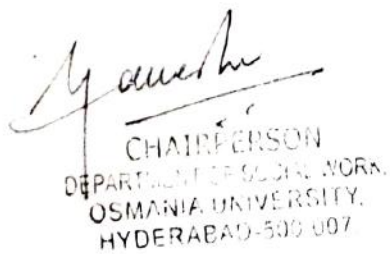 CHAIRPERSON
DEPARTMENT OF SOCIAL WORK,
OSMANIA UNIVERSITY,
HYDERABAD-500 007